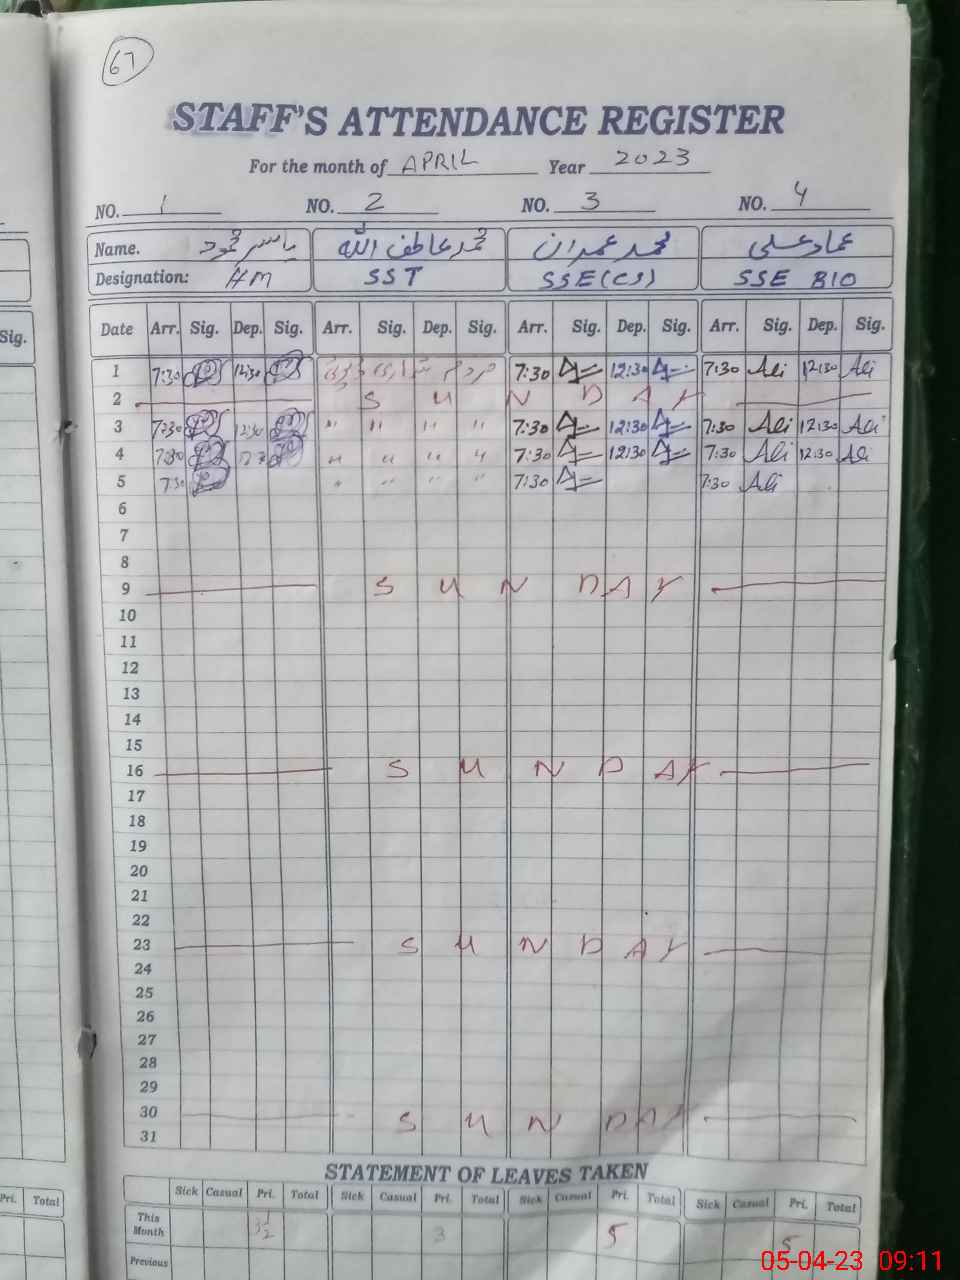 67
STAFF'S ATTENDANCE REGISTER
For the month of APRIL Year 2023
NO. 1 NO. 2 NO. 3 NO. 4
Name. یاسر محمود محمد عاطف اللہ محمد عمران عماد علی
Designation: HM SST SSE(CS) SSE BIO
Sig.
Date Arr. Sig. Dep. Sig. Arr. Sig. Dep. Sig. Arr. Sig. Dep. Sig. Arr. Sig. Dep. Sig.
1 7:30 12:30 7:30 12:30 7:30 Ali 12:30 Ali
2 S U N D A Y
3 7:30 12:30 " " " " 7:30 12:30 7:30 Ali 12:30 Ali
4 7:30 " " " " 7:30 12:30 7:30 Ali 12:30 Ali
5 7:30 " " " " 7:30 7:30 Ali
6
7
8
9 S U N D A Y
10
11
12
13
14
15
16 S U N D A Y
17
18
19
20
21
22
23 S U N D A Y
24
25
26
27
28
29
30 S U N D A Y
31
STATEMENT OF LEAVES TAKEN
Pri. Total
Sick Casual Pri. Total Sick Casual Pri. Total Sick Casual Pri. Total Sick Casual Pri. Total
This Month 3 5 5
Previous
05-04-23 09:11